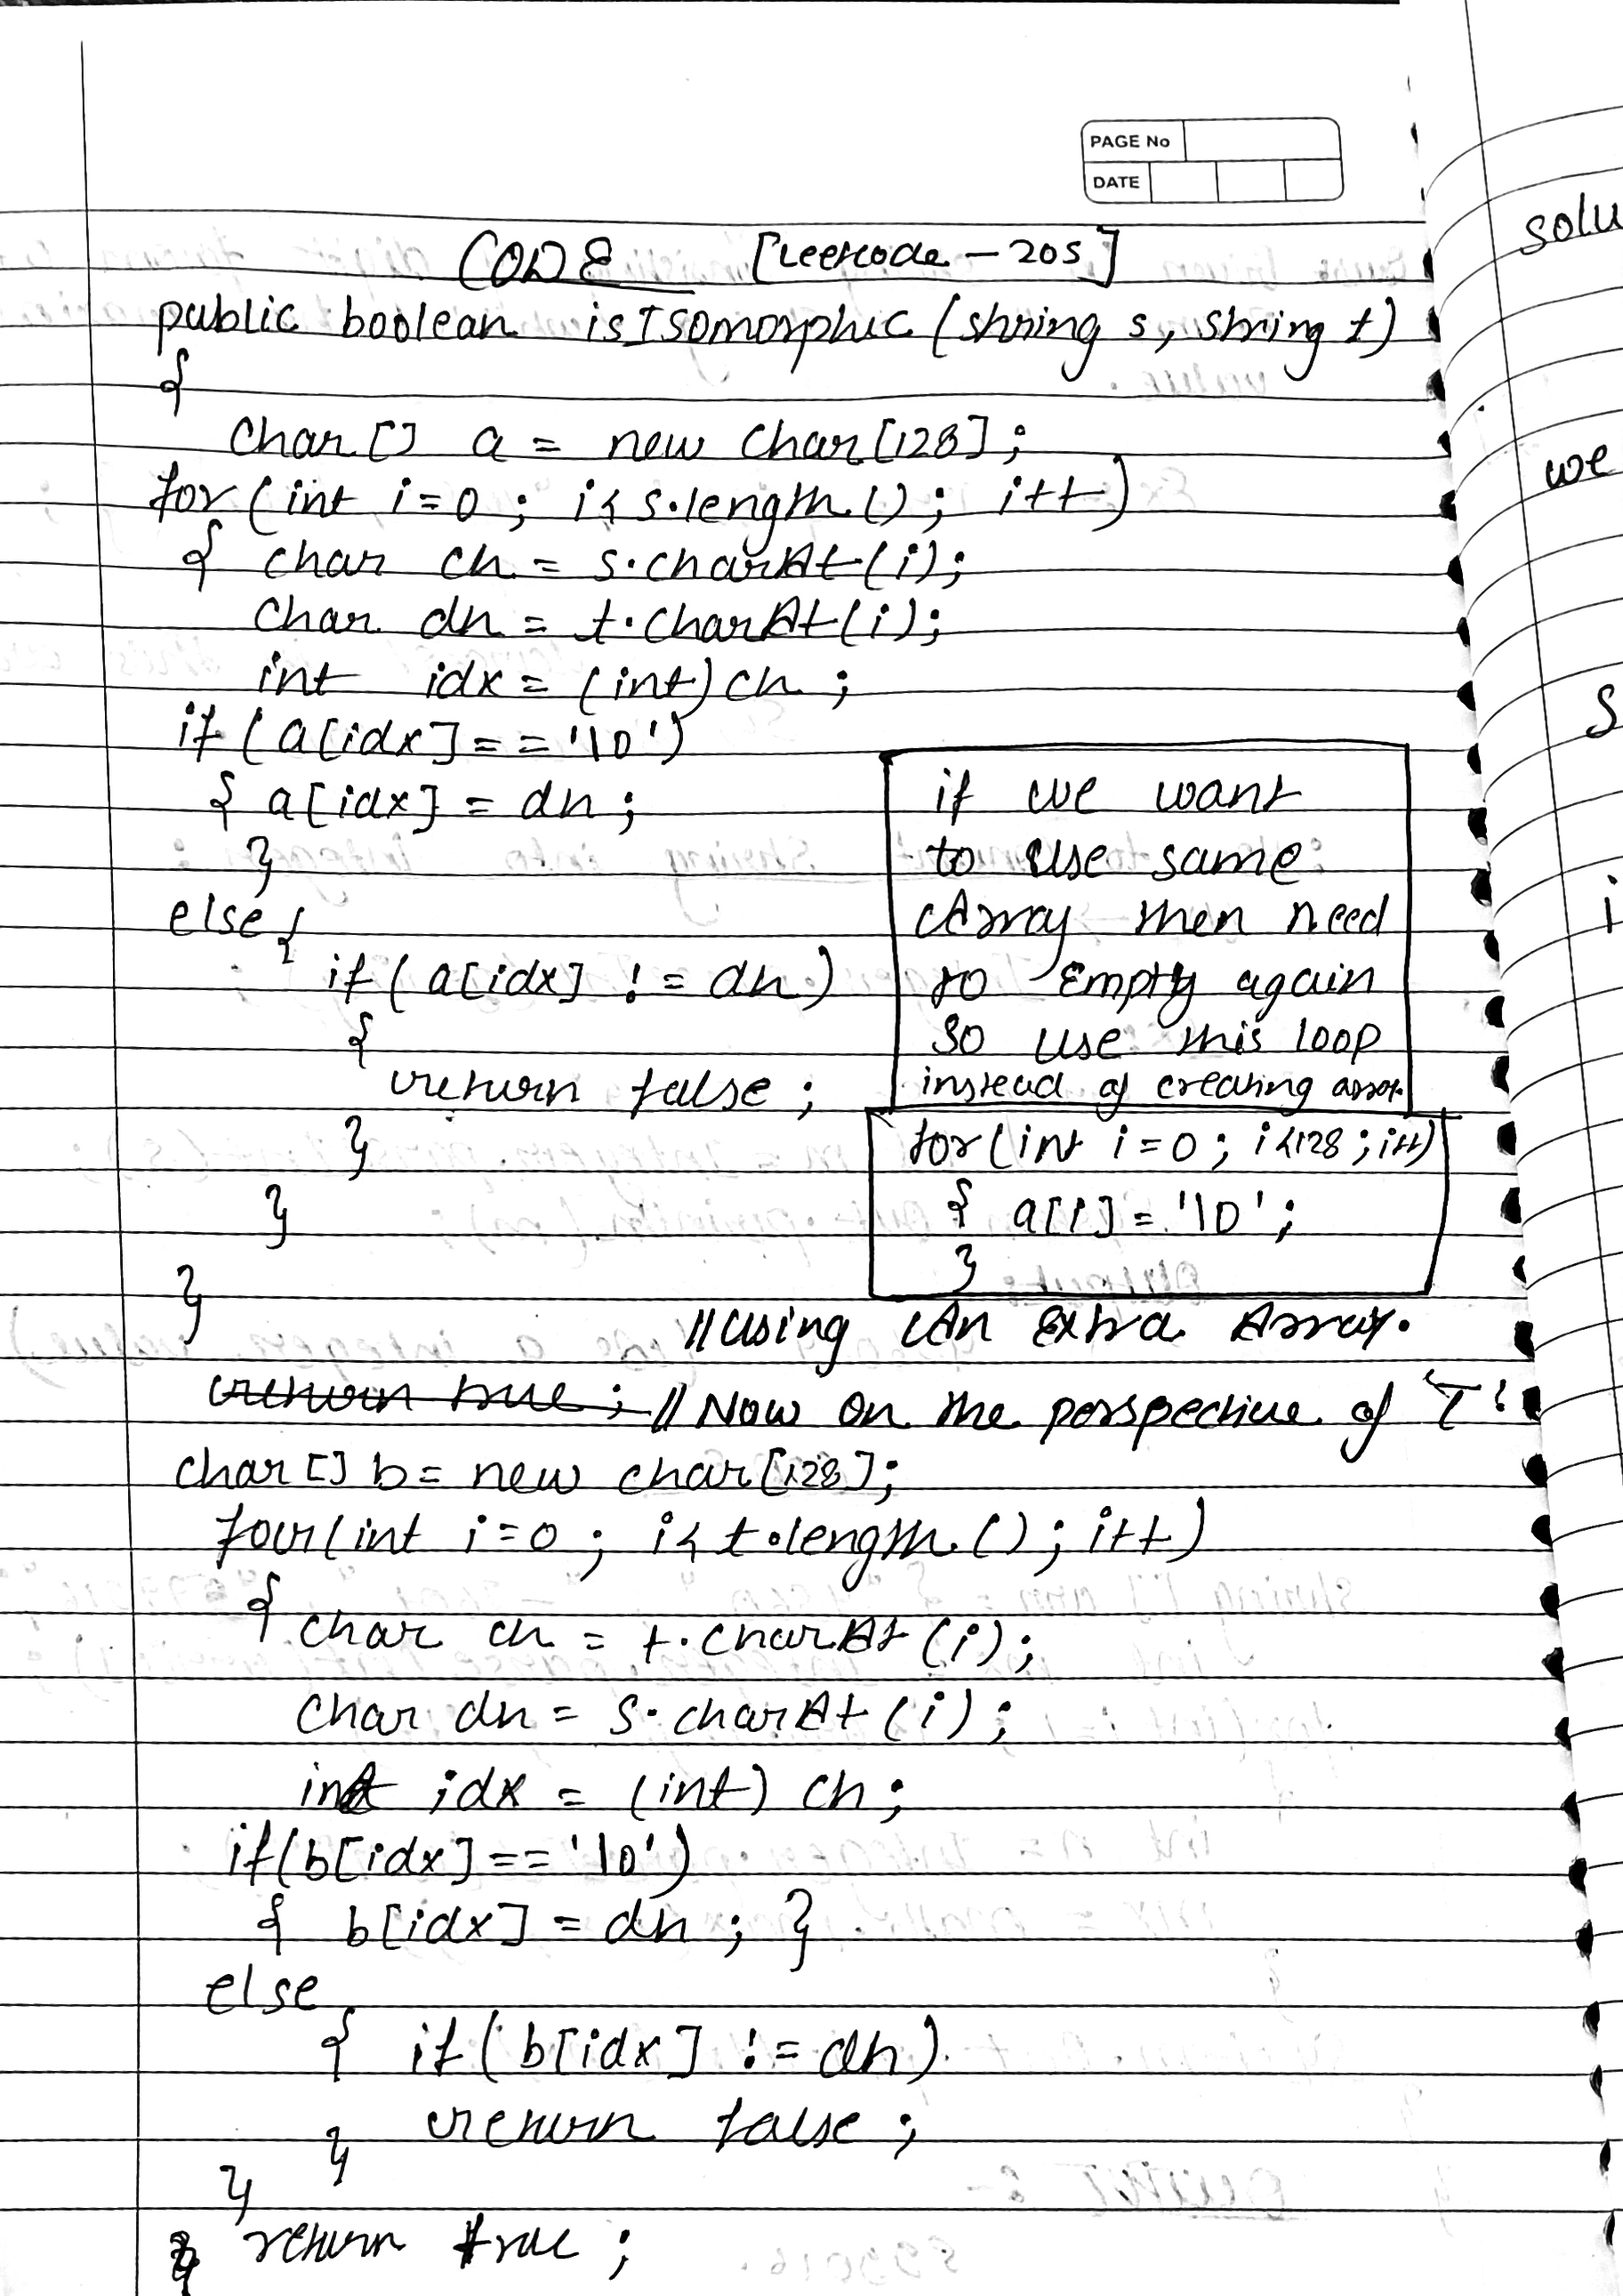 PAGE No
DATE
CODE [Leetcode - 205]
public boolean isIsomorphic (string s, string t)
{
char [] a = new char [128];
for (int i=0 ; i< s.length () ; i++)
{ char ch = s.charAt (i);
char dh = t.charAt (i);
int idx = (int) ch ;
if (a[idx] == '\0')
{ a[idx] = dh ;
}
else {
if (a[idx] != dh)
{
return false ;
}
}
}
if we want
to use same
Array then need
to Empty again
so use this loop
instead of creating
for (int i=0 ; i<128 ; i++)
{ a[i] = '\0' ;
}
//Using An Extra Array.
return true ; // Now on the perspective of 'T'
char [] b = new char [128];
for (int i=0 ; i< t.length () ; i++)
{ char ch = t.charAt (i);
char dh = s.charAt (i) ;
int idx = (int) ch ;
if (b[idx] == '\0')
{ b[idx] = dh ; }
else
{ if (b[idx] != dh)
return false ;
}
}
} return true ;
solu
we
S
i